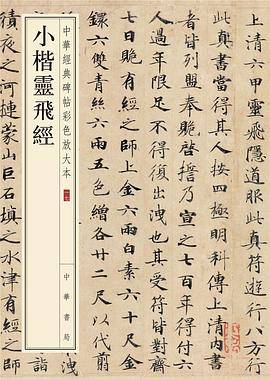 上清六甲靈飛隱道服此真符遊行八方行
此真書當得其人按四極明科傳上清內書
者皆列盟奉贶啓誓乃宣之七百年得付六
人過年限足不得復出洩也其受符皆對齋
七日贶有經之師上金六兩白素六十尺金
鐶六雙青絲六兩五色繒各廿二尺以代翦
中華經典碑帖彩色放大本
中華書局
小楷靈飛經
洩
積夜之河摙蒙山巨石填之水津有經